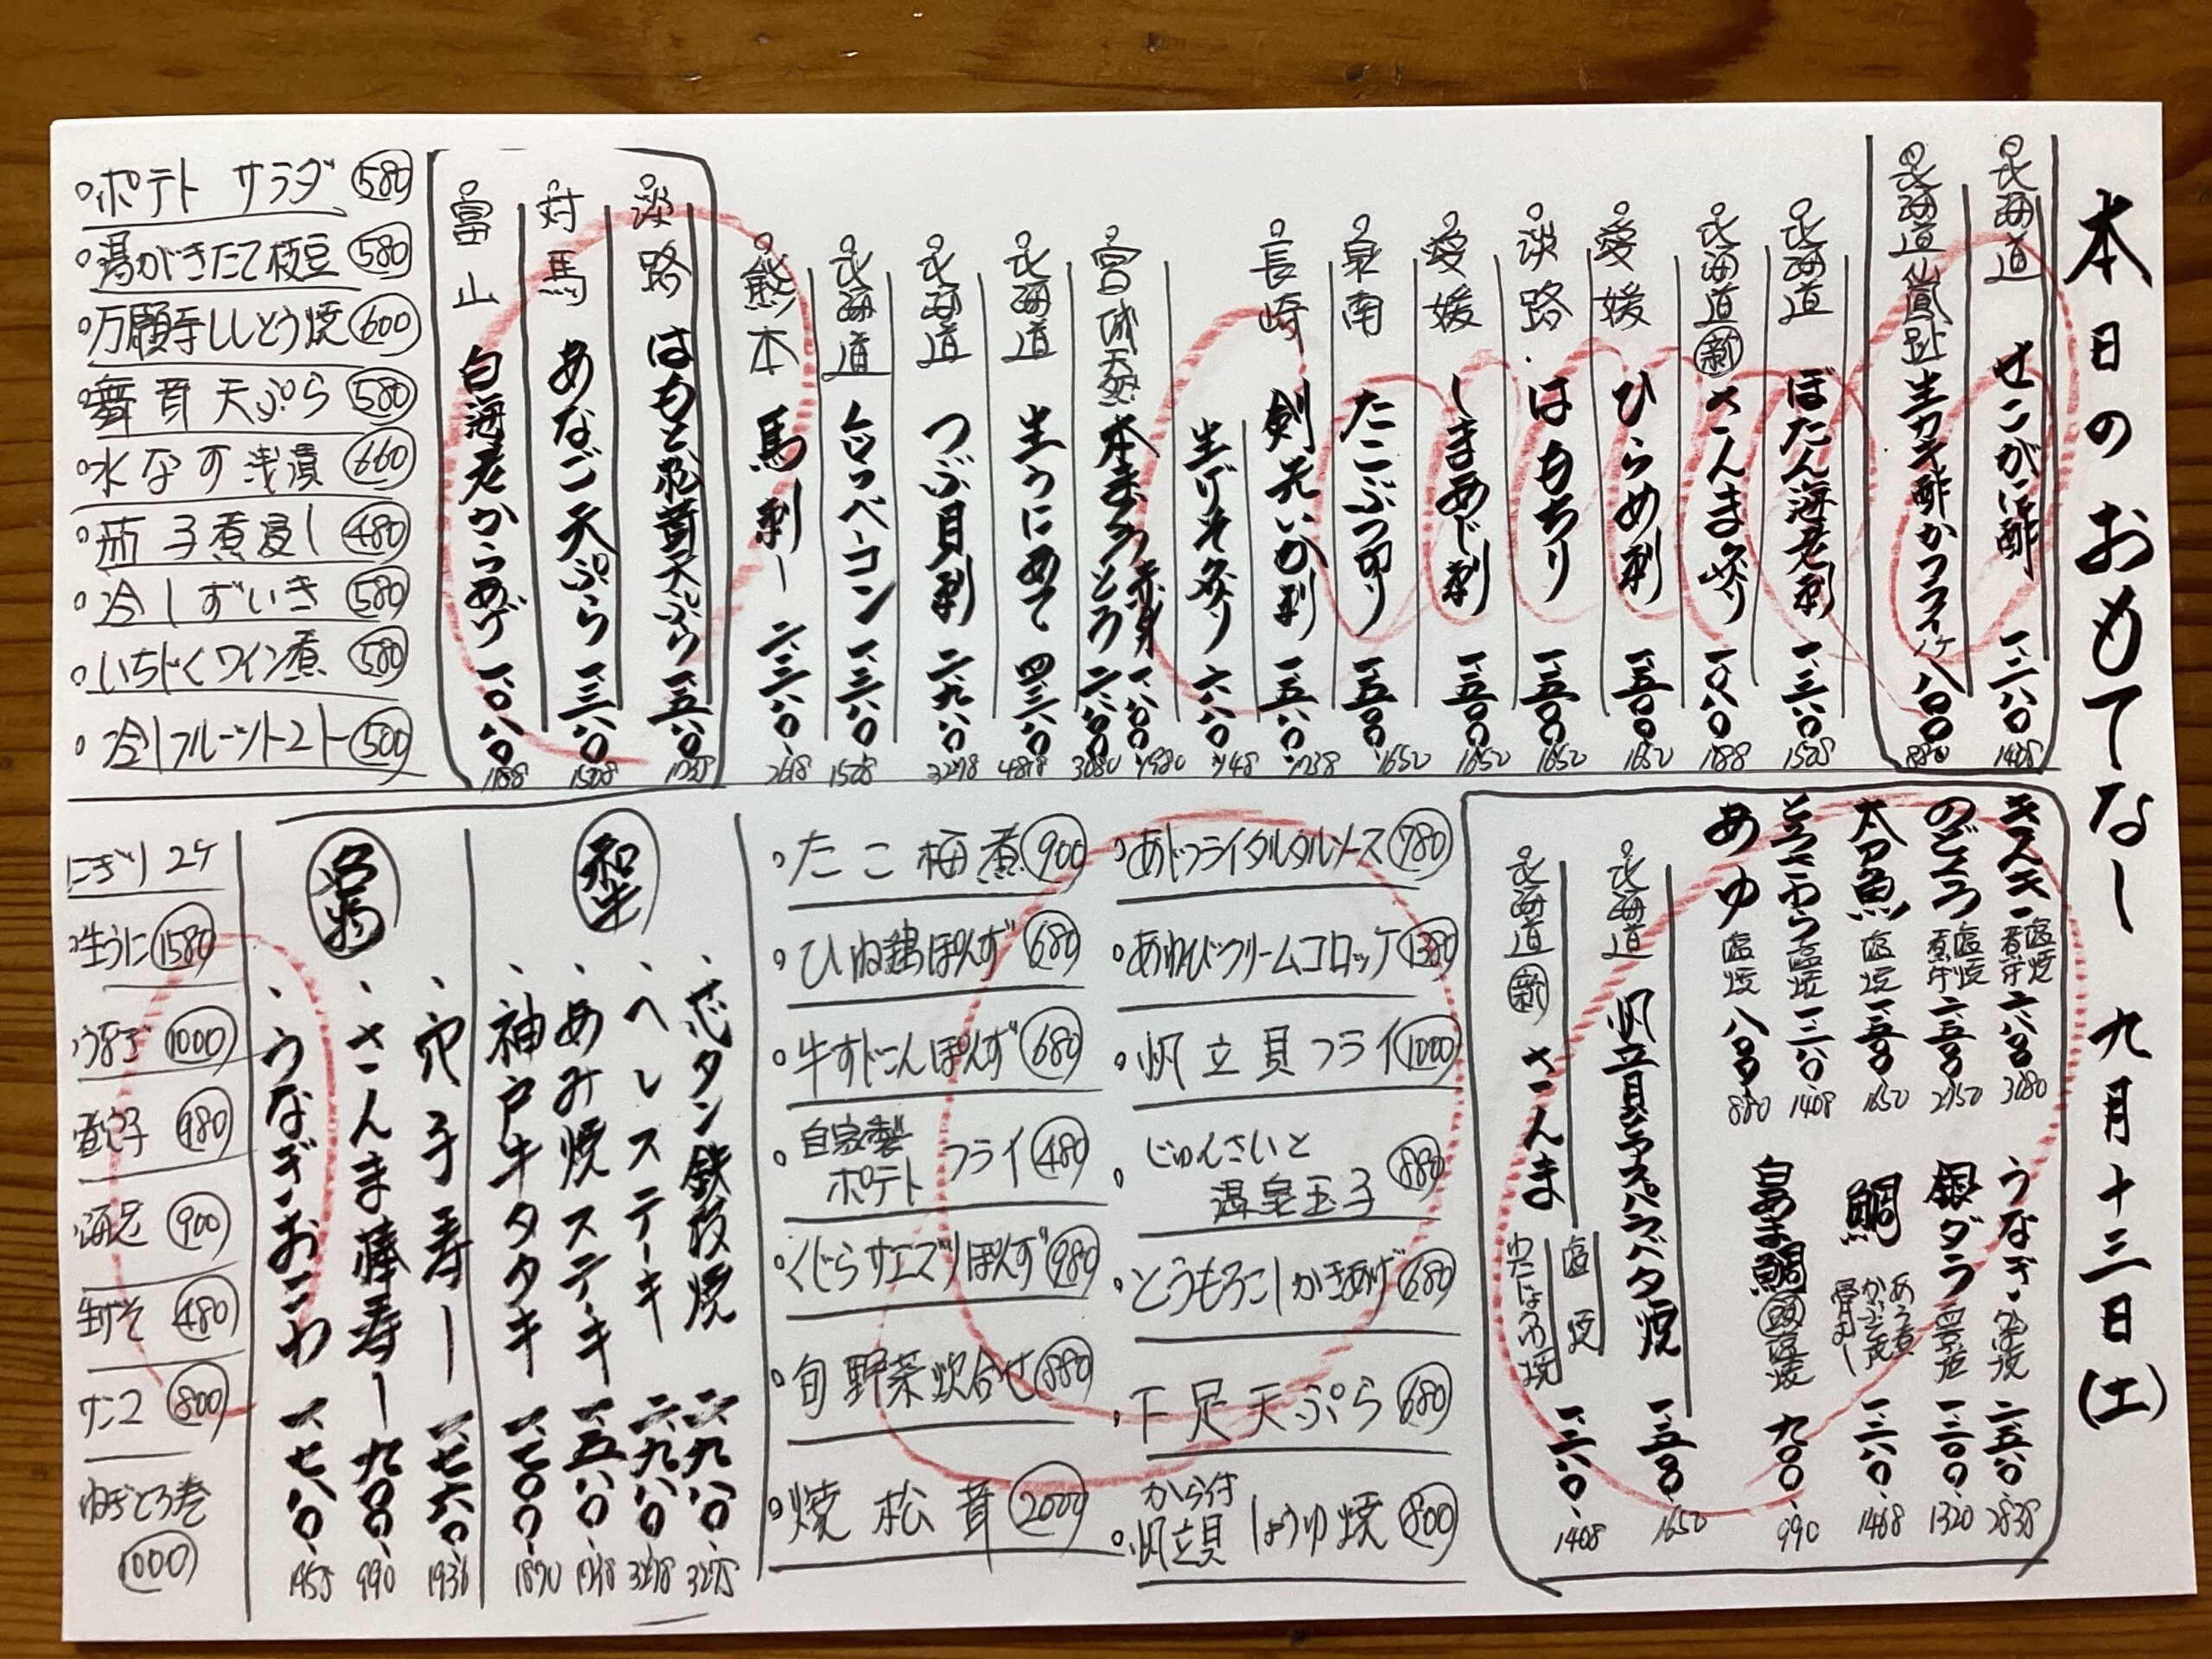 本日のおもてなし 九月十三日(土)
北海道 せこがに酢 一、二八〇、 1408
北海道仙鳳趾 生カキ酢かフライ1ケ 八〇〇 880
北海道 ぼたん海老刺 一、三八〇、 1518
北海道 新 さんま炙り 一、〇八〇、 1188
愛媛 ひらめ刺 一、五〇〇、 1650
淡路 はもちり 一、五〇〇、 1650
愛媛 しまあじ刺 一、五〇〇、 1650
泉南 たこぶつ切り 一、五〇〇、 1650
長崎 剣先いか刺 一、五八〇、 1738
生げそ炙り 六八〇、 748
宮城天然 本まぐろ 赤身 一、八〇〇、 1980
とろ 二、八〇〇、 3080
北海道 生うにあて 四、三八〇、 4818
北海道 つぶ貝刺 二、九八〇、 3278
北海道 ころベーコン 一、三八〇、 1518
熊本 馬刺し 二、三八〇、 2618
淡路 はもと松茸天ぷら 一、五八〇、 1738
対馬 あなご天ぷら 一、三八〇、 1518
富山 白海老からあげ 一、〇八〇、 1188
ポテトサラダ 580
湯がきたて枝豆 580
万願寺ししとう焼 600
舞茸天ぷら 580
水なす浅漬 660
茄子煮浸し 480
冷しずいき 580
いちじくワイン煮 580
冷しフルーツトマト 500
キンキ 塩焼 煮付 二、八〇〇、 3080
のどぐろ 塩焼 煮付 二、五〇〇、 2750
太刀魚 塩焼 一、五〇〇、 1650
とろさわら 塩焼 一、二八〇、 1408
あゆ 塩焼 八〇〇、 880
うなぎ 蒲焼 二、五八〇、 2838
銀ダラ 西京焼 一、二〇〇、 1320
鯛 あら煮 かぶと焼 骨蒸し 一、二八〇、 1408
白あま鯛 頭 塩焼 九〇〇、 990
北海道 帆立貝とアスパラバタ焼 一、五〇〇、 1650
北海道 新 さんま 塩焼 肝じょうゆ焼 一、二八〇、 1408
あじフライタルタルソース 780
あわびクリームコロッケ 1380
帆立貝フライ 1000
じゅんさいと温泉玉子 880
とうもろこしかきあげ 680
下足天ぷら 680
から付帆立貝しょうゆ焼 800
たこ梅煮 900
ひね鶏ぽんず 680
牛すじこんぽんず 680
自家製ポテトフライ 480
くじらサエズリぽんず 980
旬野菜炊合せ 880
焼松茸 2000
和牛
、芯タン鉄板焼 二、九八〇、 3278
、へレステーキ 二、九八〇、 3278
、あみ焼ステーキ 一、五八〇、 1738
、神戸牛タタキ 一、七〇〇、 1870
名物
、穴子寿し 一、七六〇、 1936
、さんま棒寿し 九〇〇、 990
、うなぎおこわ 一、七八〇、 1958
にぎり 2ケ
生うに 1580
1000
980
海老 900
生げそ 480
800
ねぎとろ巻 1000